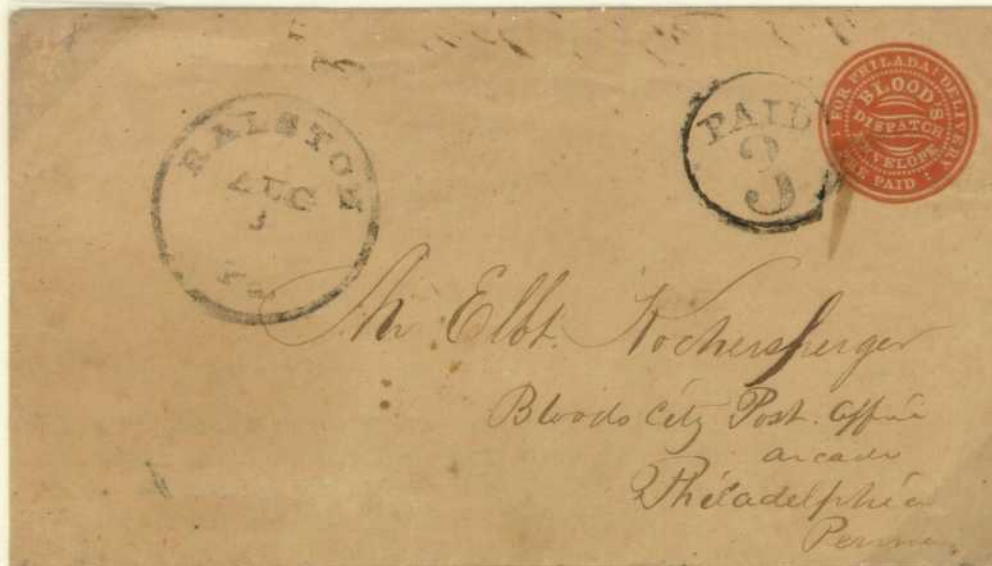 RALSTON
AUG
3
Pa
PAID
3
FOR PHILADA. DELIVERY
BLOOD'S
DISPATCH
ENVELOPE
PRE PAID
Mr Elbt. Kochersperger
Bloods City Post. Office
arcade
Philadelphia
Penna